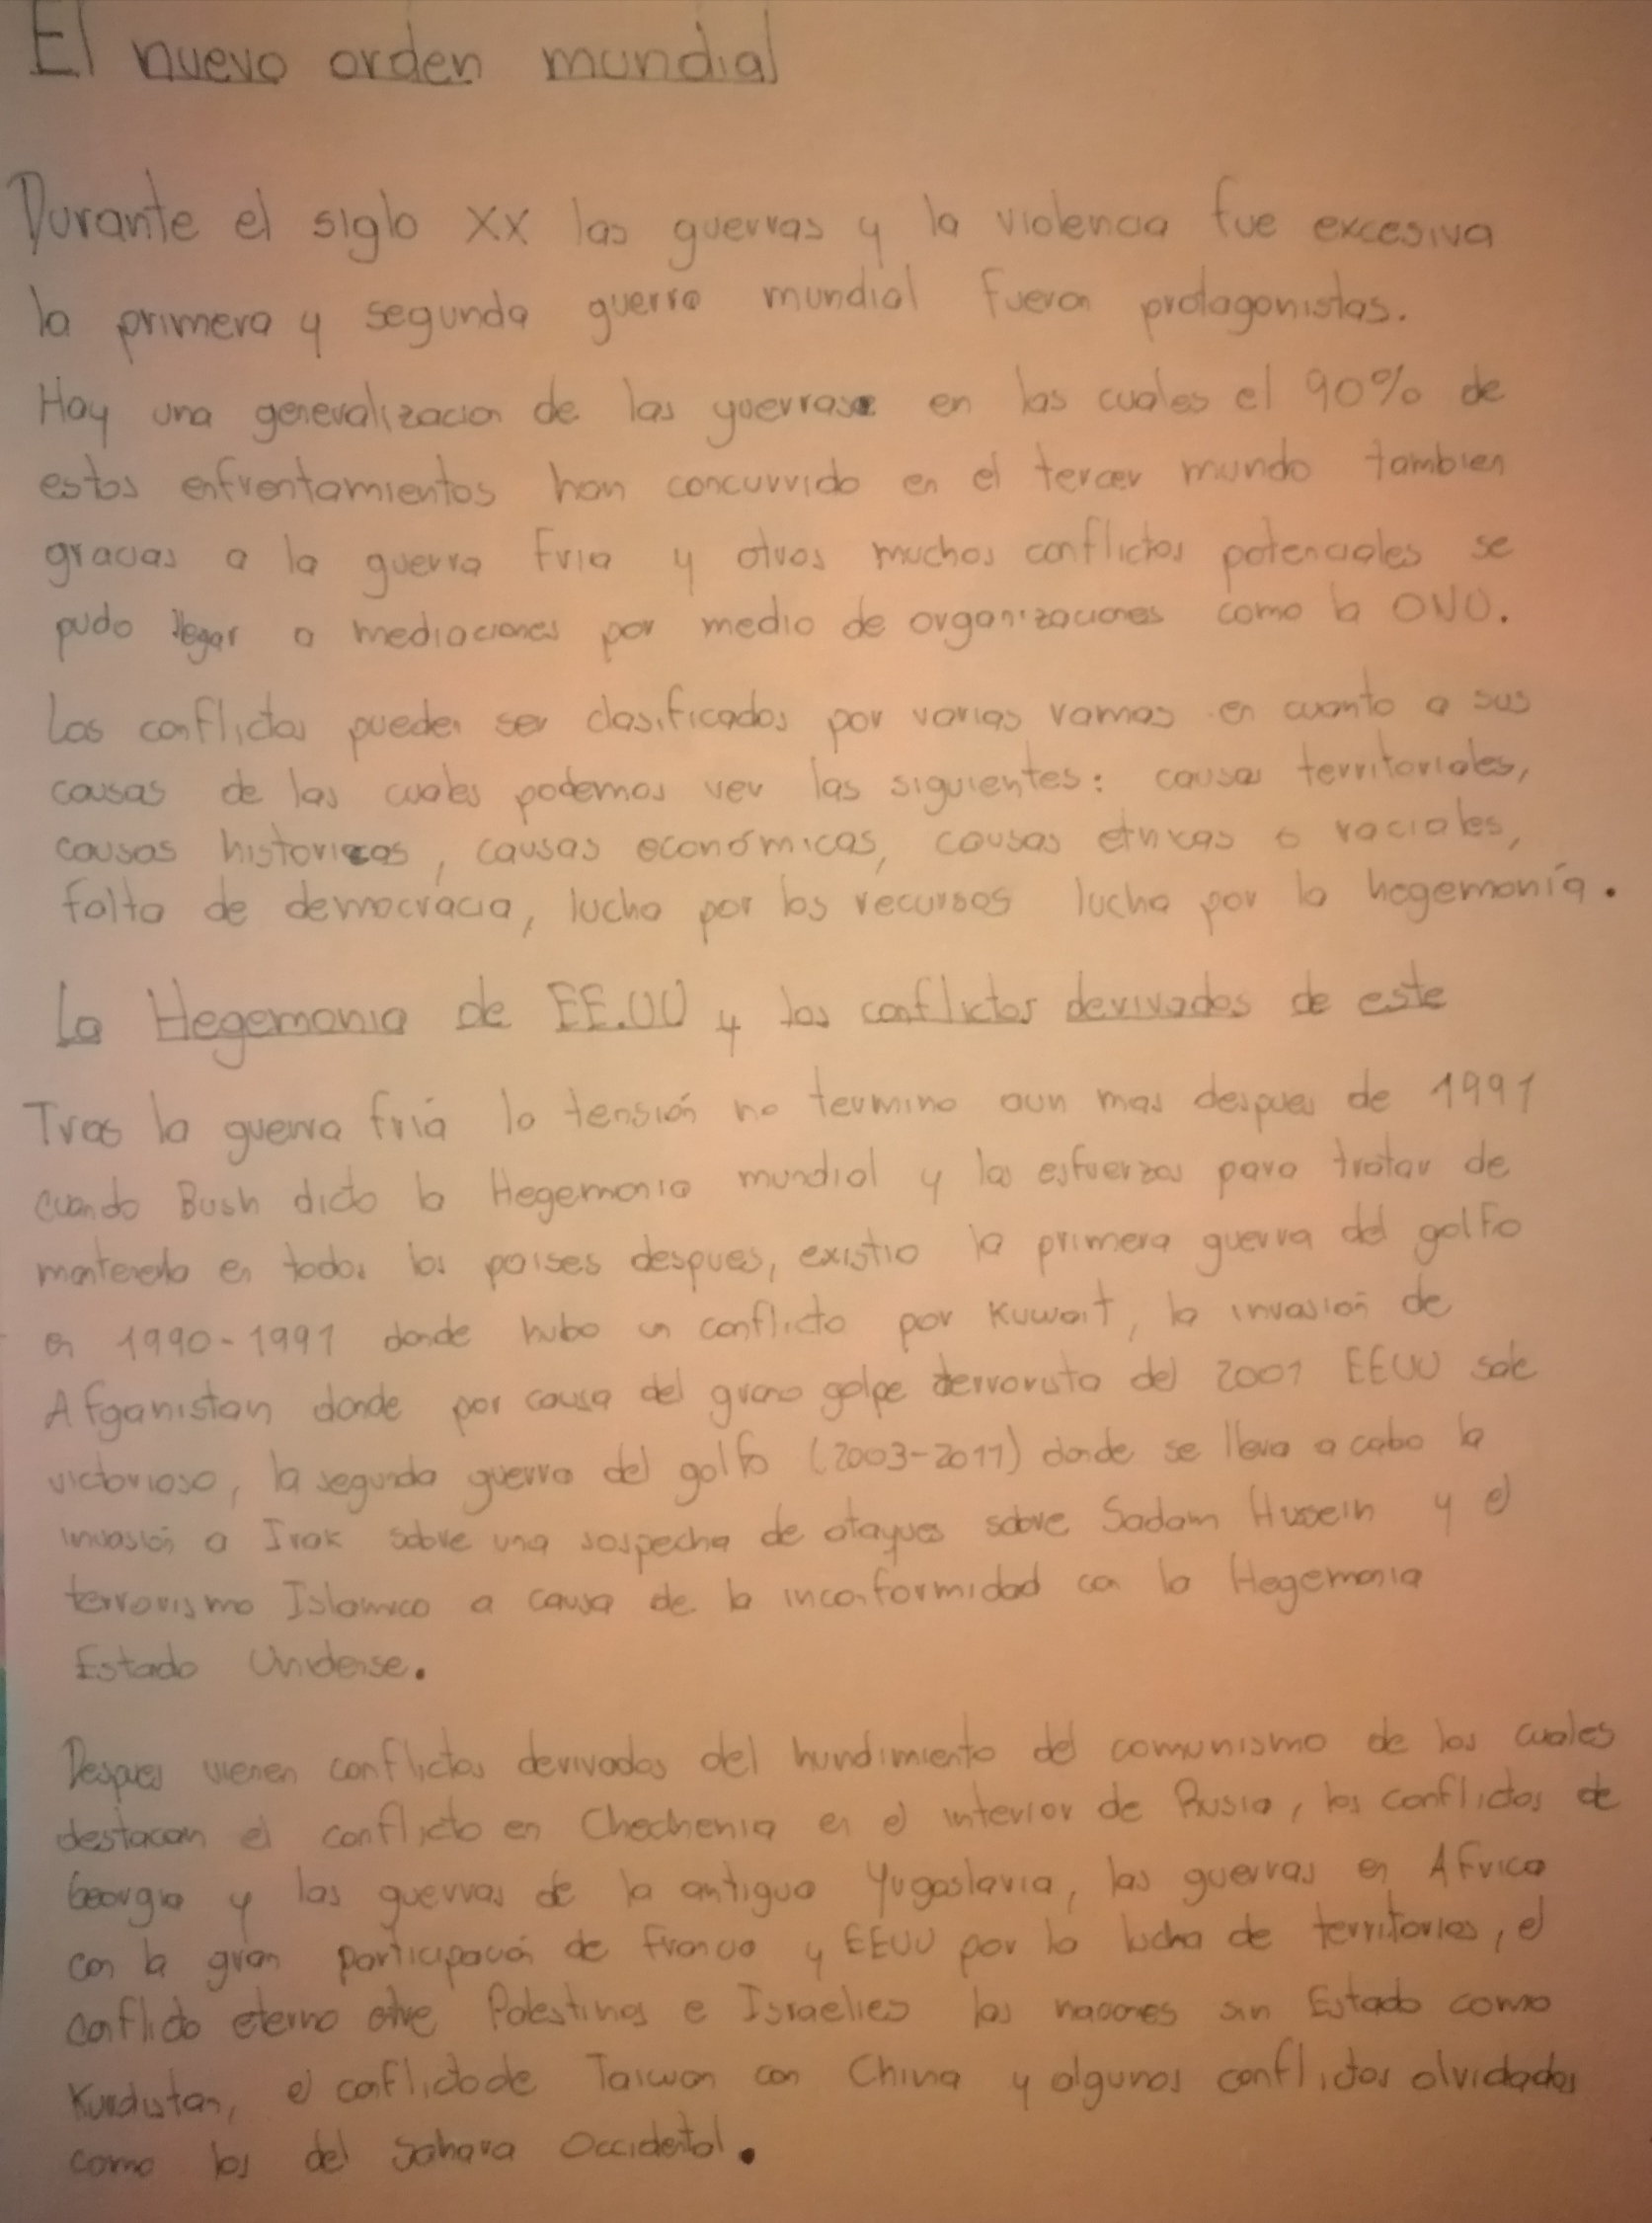 El nuevo orden mundial
Durante el siglo XX las guerras y la violencia fue excesiva
la primera y segunda guerra mundial fueron protagonistas.
Hay una generalizacion de las guerras en las cuales el 90% de
estos enfrentamientos han concurrido en el tercer mundo tambien
gracias a la guerra fria y otros muchos conflictos potenciales se
pudo llegar a mediaciones por medio de organizaciones como la ONU.
Los conflictos pueden ser clasificados por varias ramas en cuanto a sus
causas de las cuales podemos ver las siguientes: causas territoriales,
causas historicas, causas económicas, causas etnicas o raciales,
falta de democracia, lucha por los recursos lucha por la hegemonía.
La Hegemonia de EE.UU y los conflictos derivados de este
Tras la guerra friá la tensión no termino aun mas despues de 1991
cuando Bush dicto la Hegemonia mundial y los esfuerzos para tratar de
mantenerla en todos los paises despues, existio la primera guerra del golfo
en 1990-1991 donde hubo un conflicto por Kuwait, la invasión de
Afganistan donde por causa del grano golpe terrorista del 2001 EEUU sale
victorioso, la segunda guerra del golfo (2003-2011) donde se lleva a cabo la
invasión a Irak sobre una sospecha de ataques sobre Sadam Husein y el
terrorismo Islamico a causa de la inconformidad con la Hegemonia
Estado Unidense.
Despues vienen conflictos derivados del hundimiento del comunismo de los cuales
destacan el conflicto en Chechenia en el interior de Rusia, los conflictos de
Georgia y las guerras de la antigua Yugoslavia, las guerras en Africa
con la gran participación de Francia y EEUU por la lucha de territorios, el
conflicto eterno entre Palestinos e Israelies las naciones sin Estado como
Kurdistan, el conflicto de Taiwan con China y algunos conflictos olvidados
como los del Sahara Occidental.